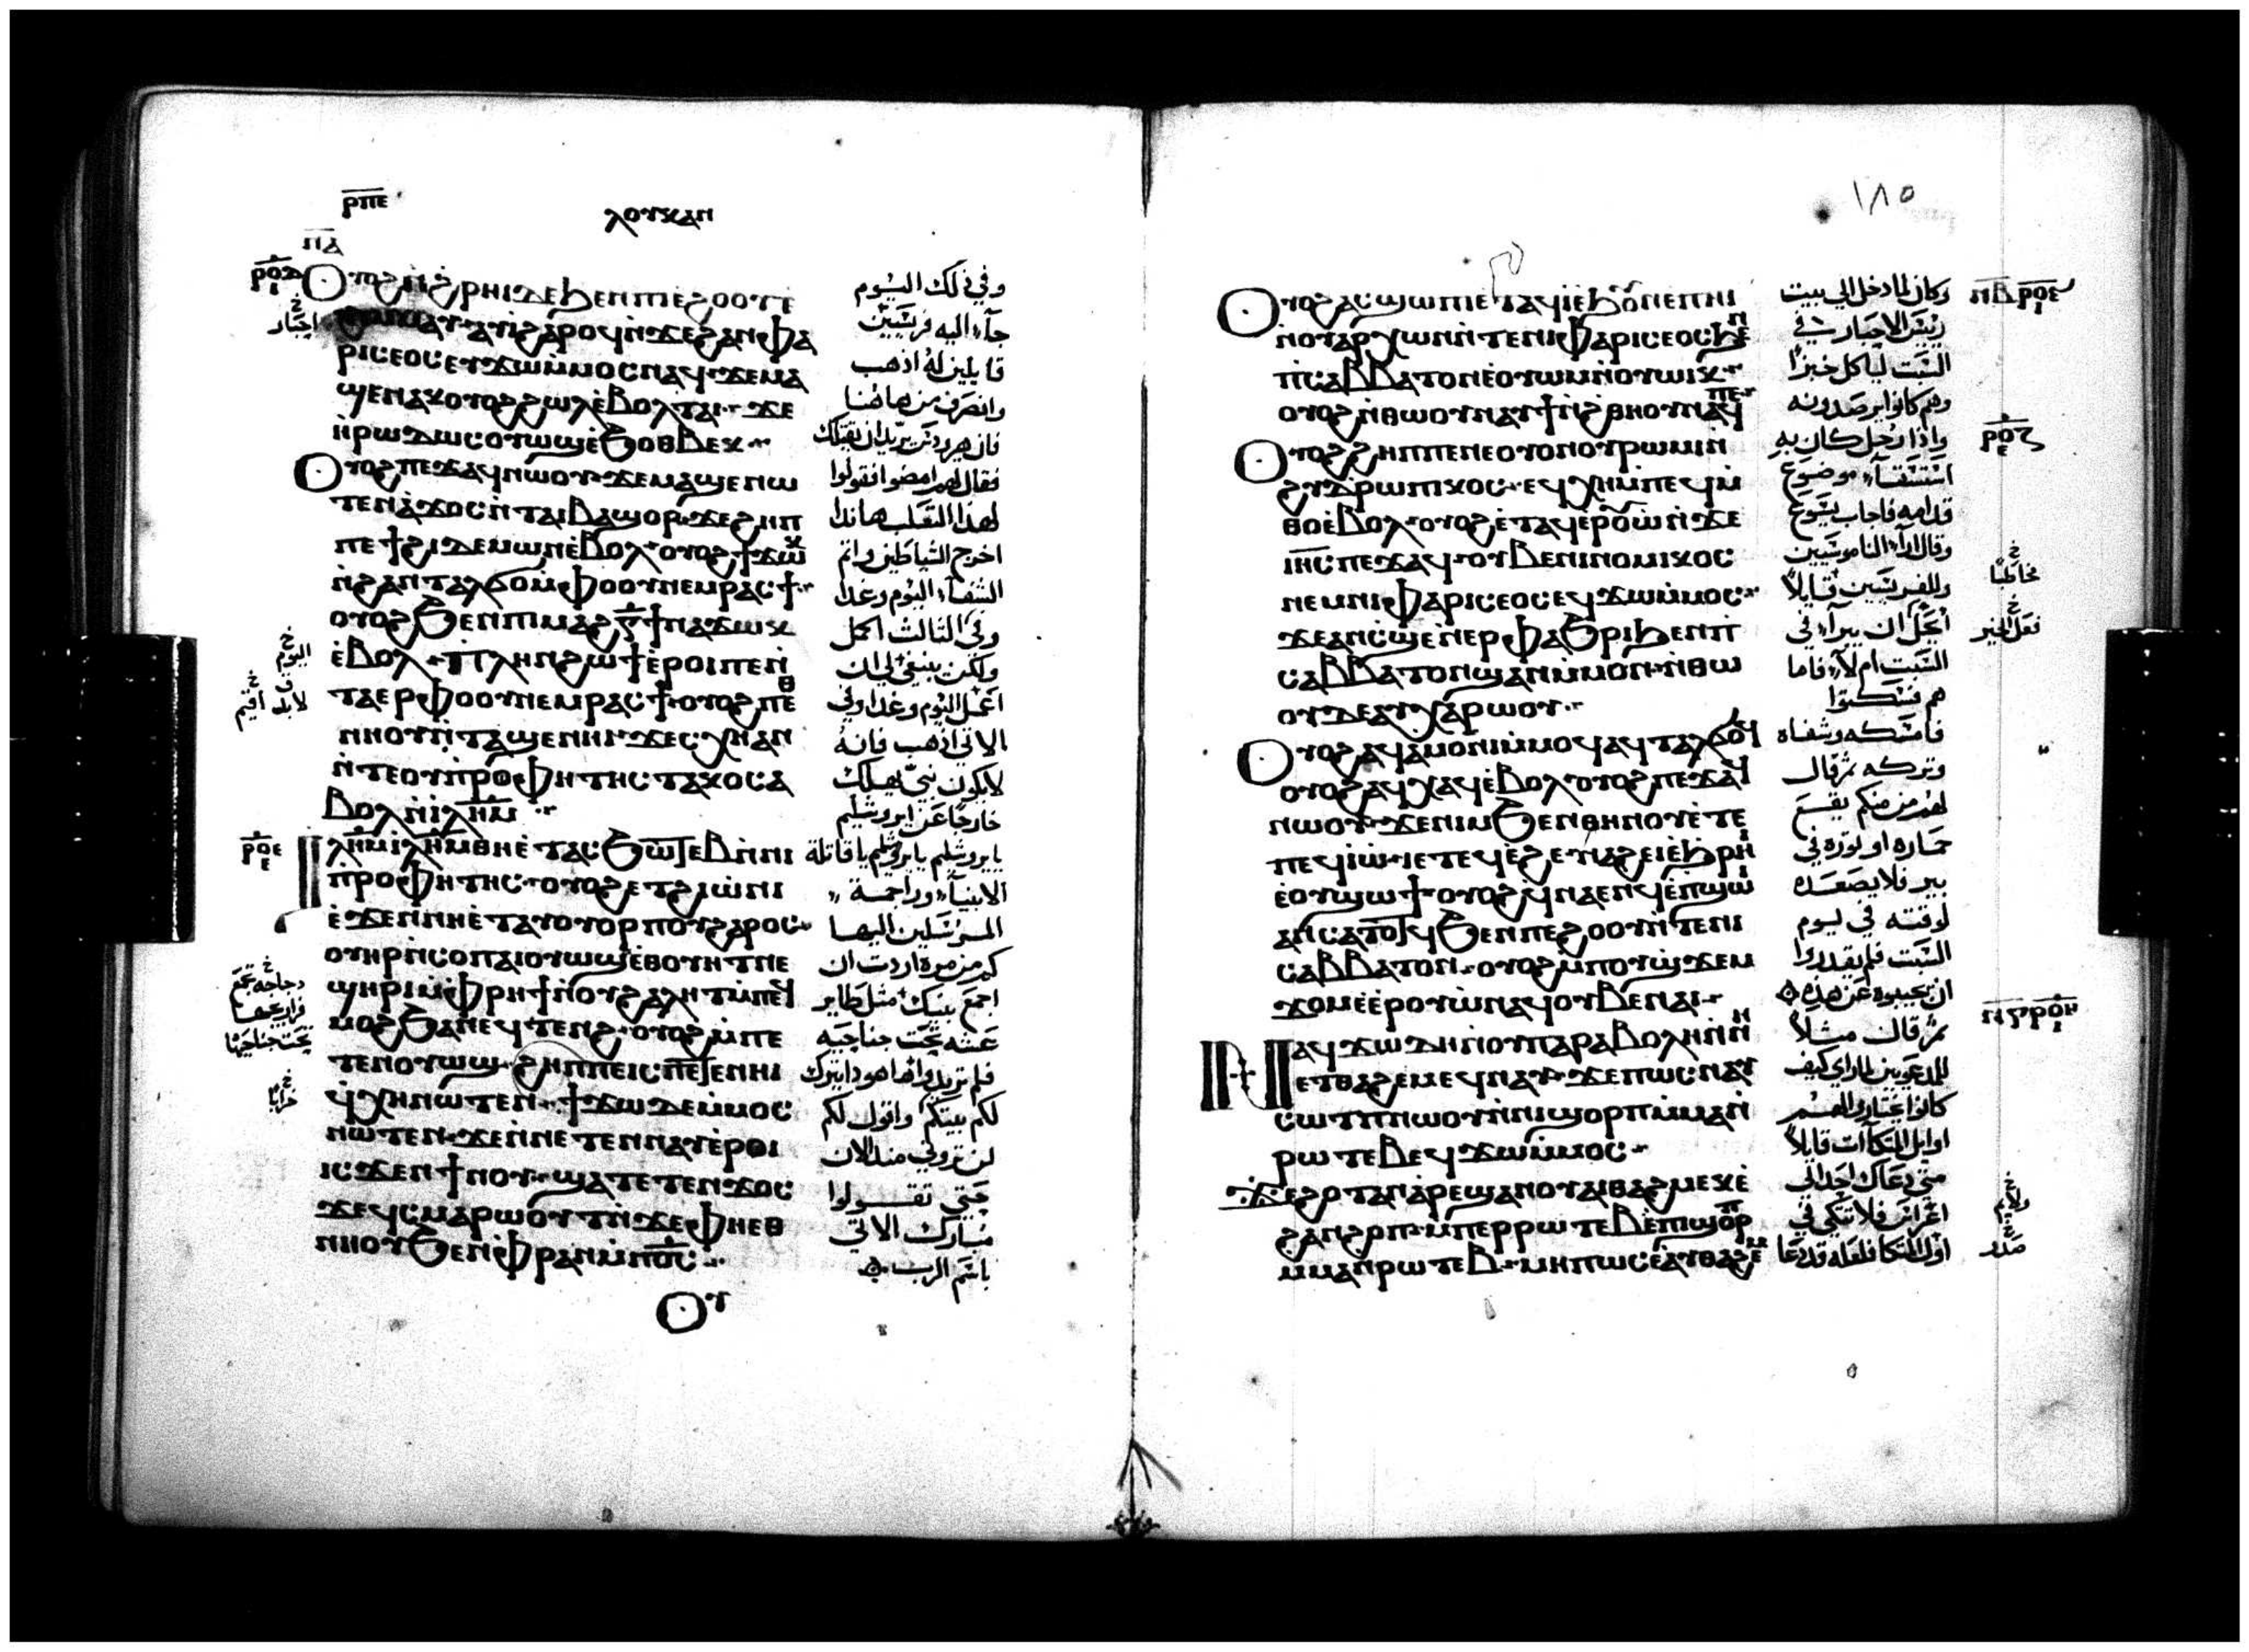 ⲣⲡⲉ
ⲗⲟⲩⲕⲁⲛ
ⲡⲁ
ⲣⲟⲇ
ⲓ
Ⲟⲩⲟϩ ⲛ̀ϩ̀ⲣⲏⲓ ⲇⲉ ϧⲉⲛ ⲡⲓⲉϩⲟⲟⲩ ⲉ
ⲁⲩⲓ̀ ϩⲁⲣⲟϥ ⲛ̀ϫⲉ ϩⲁⲛⲫⲁ
ⲣⲓⲥⲉⲟⲥ ⲉⲩϫⲱ ⲙ̀ⲙⲟⲥ ⲛⲁϥ ϫⲉ ⲙⲁ
ϣⲉⲛⲁⲕ ⲟⲩⲟϩ ϩⲱⲗ ⲉ̀ⲃⲟⲗ ⲧⲁⲓ ϫⲉ
ⲏ̀ⲣⲱⲇⲏⲥ ⲟⲩⲱϣ ⲉ̀ϧⲟⲑⲃⲉⲕ
Ⲟⲩⲟϩ ⲡⲉϫⲁϥ ⲛⲱⲟⲩ ϫⲉ ⲙⲁϣⲉⲛⲱ
ⲧⲉⲛ ⲁ̀ϫⲟⲥ ⲛ̀ⲧⲁⲓⲃⲁϣⲟⲣ ϫⲉ ϩⲏⲡ
ⲡⲉ ϯϩⲓ ⲇⲉⲙⲱⲛ ⲉ̀ⲃⲟⲗ ⲟⲩⲟϩ ϯϫⲱⲕ
ⲛ̀ϩⲁⲛⲧⲁⲗϭⲟ ⲙ̀ⲫⲟⲟⲩ ⲛⲉⲙ ⲣⲁⲥϯ
ⲟⲩⲟϩ ϧⲉⲛ ⲡⲓⲙⲁϩ ⲅ̅ ϯⲛⲁϫⲱⲕ
ⲉ̀ⲃⲟⲗ ⲡⲗⲏⲛ ϩⲱϯ ⲉ̀ⲣⲟⲓ ⲡⲉ ⲛ̀
ⲧⲁⲉⲣ ⲫⲟⲟⲩ ⲛⲉⲙ ⲣⲁⲥϯ ⲟⲩⲟϩ ⲡⲉⲑ
ⲛⲏⲟⲩ ⲛ̀ⲧⲁϣⲉⲛⲏⲓ ϫⲉ ⲥⲭⲏ ⲁⲛ
ⲛ̀ⲧⲉ ⲟⲩⲡⲣⲟⲫⲏⲧⲏⲥ ⲧⲁⲕⲟ ⲥⲁ
ⲃⲟⲗ ⲛ̀ⲓ̀ⲗⲏⲙ
ⲣⲟⲉ
ⲉ
Ⲓⲗⲏⲙ ⲓⲗⲏⲙ ⲑⲏ ⲉ̀ⲧⲁⲥϧⲱⲧⲉⲃ ⲛ̀ⲛⲓ
ⲡⲣⲟⲫⲏⲧⲏⲥ ⲟⲩⲟϩ ⲉⲧϩⲓⲱ̀ⲛⲓ
ⲉ̀ϫⲉⲛ ⲛⲏ ⲉ̀ⲧⲁⲩⲟⲩⲟⲣⲡⲟⲩ ϩⲁⲣⲟⲥ
ⲟⲩⲏⲣ ⲛ̀ⲥⲟⲡ ⲁⲓⲟⲩⲱϣ ⲉ̀ⲑⲟⲩⲏⲧ ⲛⲉ
ϣⲏⲣⲓ ⲙ̀ⲫⲣⲏϯ ⲛ̀ⲟⲩϩⲁⲗⲏⲧ ⲙ̀ⲡⲉϥ
ⲙⲟϩ ϧⲁ ⲛⲉϥⲧⲉⲛϩ ⲟⲩⲟϩ ⲙ̀ⲡⲉ
ⲧⲉⲛⲟⲩⲱϣ ϩⲏⲡⲡⲉ ⲓⲥ ⲡⲉⲧⲉⲛⲏⲓ
ϥ̀ⲭⲏ ⲛⲱⲧⲉⲛ ϯϫⲱ ⲇⲉ ⲙ̀ⲙⲟⲥ
ⲛⲱⲧⲉⲛ ϫⲉ ⲛ̀ⲛⲉⲧⲉⲛⲛⲁⲩ ⲉ̀ⲣⲟⲓ
ⲓⲥϫⲉⲛ ϯⲛⲟⲩ ϣⲁⲧⲉⲧⲉⲛϫⲟⲥ
ϫⲉ ϥ̀ⲥⲙⲁⲣⲱⲟⲩⲧ ⲛ̀ϫⲉ ⲫⲏ ⲉⲑ
ⲛⲏⲟⲩ ϧⲉⲛ ⲫⲣⲁⲛ ⲙ̀ⲡⲟ̅ⲥ̅
Ⲟⲩ
وفي ذلك اليوم
جآء اليه فريسيين
قايلين له اذهب
وانصرف من هاهنا
فان هيرودس يريد ان يقتلك
فقال لهم امضوا فقولوا
لهذا الثعلب هانذا
اخرج الشياطين واتم
الشفآء اليوم وغدا
وفي الثالث اكمل
ولكن ينبغي لي ان
اعمل اليوم وغدا وفي
الاتي اذهب فانه
لا يكون نبي يهلك
خارجا عن ايروشليم
يا يروشليم يا يروشليم يا قاتلة
الانبيآء وراجمة
المرسلين اليها
كم من مرة اردت ان
اجمع بنيك مثل طاير
عشه تحت جناحيه
فلم تريدوا ها هوذا يترك
لكم بيتكم واقول لكم
لن تروني منذ الان
حتى تقولوا
مبارك الاتي
باسم الرب
احبار
اليوم
لابد اقيم
دجاجه تجمع
فراريجها
تحت جناحيها
خرابا
١٨٥
Ⲟⲩⲟϩ ⲁⲥϣⲱⲡⲓ ⲉ̀ⲧⲁϥⲓ̀ ⲉ̀ϧⲟⲩⲛ ⲉ̀ⲡⲏⲓ
ⲛ̀ⲟⲩⲁⲣⲭⲱⲛ ⲛ̀ⲧⲉ ⲛⲓⲫⲁⲣⲓⲥⲉⲟⲥ ϧⲉⲛ
ⲡ̀ⲥⲁⲃⲃⲁⲧⲟⲛ ⲉ̀ⲟⲩⲱⲙ ⲛ̀ⲟⲩⲱⲓⲕ
ⲟⲩⲟϩ ⲛ̀ⲑⲱⲟⲩ ⲛⲁⲩϯ ⲛ̀ϩ̀ⲑⲏⲟⲩ ⲛⲁϥ ⲡⲉ
Ⲟⲩⲟϩ ϩⲏⲡⲡⲉ ⲛⲉ ⲟⲩⲟⲛ ⲟⲩⲣⲱⲙⲓ ⲛ̀
ϩⲩⲇⲣⲱⲡⲓⲕⲟⲥ ⲉϥⲭⲏ ⲙ̀ⲡⲉϥⲙ̀
ⲑⲟ ⲉ̀ⲃⲟⲗ ⲟⲩⲟϩ ⲉ̀ⲧⲁϥⲉⲣⲟⲩⲱ̀ ⲛ̀ϫⲉ
ⲓⲏ̅ⲥ̅ ⲡⲉϫⲁϥ ⲟⲩⲃⲉ ⲛⲓⲛⲟⲙⲓⲕⲟⲥ
ⲛⲉⲙ ⲛⲓⲫⲁⲣⲓⲥⲉⲟⲥ ⲉϥϫⲱ ⲙ̀ⲙⲟⲥ
ϫⲉ ⲁⲛ ⲥ̀ϣⲉ ⲛ̀ⲉⲣⲫⲁϧⲣⲓ ϧⲉⲛ ⲡ̀
ⲥⲁⲃⲃⲁⲧⲟⲛ ϣⲁⲛ ⲙ̀ⲙⲟⲛ ⲛ̀ⲑⲱ
ⲟⲩ ⲇⲉ ⲁⲩⲭⲁⲣⲱⲟⲩ
Ⲟⲩⲟϩ ⲁϥⲁ̀ⲙⲟⲛⲓ ⲙ̀ⲙⲟϥ ⲁϥⲧⲁⲗϭⲟϥ
ⲟⲩⲟϩ ⲁϥⲭⲁϥ ⲉ̀ⲃⲟⲗ ⲟⲩⲟϩ ⲡⲉϫⲁϥ
ⲛⲱⲟⲩ ϫⲉ ⲛⲓⲙ ϧⲉⲛ ⲑⲏⲛⲟⲩ ⲉ̀ⲧⲉ
ⲡⲉϥⲓⲱ̀ ⲓⲉ ⲧⲉϥⲉ̀ϩⲉ ⲛⲁϩⲉⲓ ⲉ̀ϧⲣⲏⲓ
ⲉ̀ⲟⲩϣⲱϯ ⲟⲩⲟϩ ϥ̀ⲛⲁⲉⲛϥ ⲉ̀ⲡϣⲱⲓ
ⲁⲛ ⲥⲁⲧⲟⲧϥ ϧⲉⲛ ⲡⲉϩⲟⲟⲩ ⲛ̀ⲧⲉ ⲛⲓ
ⲥⲁⲃⲃⲁⲧⲟⲛ ⲟⲩⲟϩ ⲙ̀ⲡⲟⲩϣ̀ϫⲉⲙ
ϫⲟⲙ ⲉ̀ⲉⲣⲟⲩⲱ̀ ⲛⲁϥ ⲟⲩⲃⲉ ⲛⲁⲓ
Ⲛⲁϥϫⲱ ⲇⲏ ⲛ̀ⲟⲩⲡⲁⲣⲁⲃⲟⲗⲏ ⲛ̀ⲛⲏ
ⲉⲧⲑⲁϩⲉⲙ ⲉϥⲛⲁⲩ ϫⲉ ⲡⲱⲥ ⲛⲁⲩ
ⲥⲱⲧⲡ ⲛⲱⲟⲩ ⲛ̀ⲛⲓϣⲟⲣⲡ ⲙ̀ⲙⲁⲛ̀
ⲣⲱⲧⲉⲃ ⲉϥϫⲱ ⲙ̀ⲙⲟⲥ
Ϫⲉ ϩⲟⲧⲁⲛ ⲁⲣⲉϣⲁⲛ ⲟⲩⲁⲓ ⲑⲁϩⲙⲉⲕ ⲉ̀
ϩⲁⲛϩⲟⲡ ⲙ̀ⲡⲉⲣⲣⲱⲧⲉⲃ ⲉ̀ⲡϣⲟⲣⲡ
ⲙⲙⲁⲛⲣⲱⲧⲉⲃ ⲙⲏⲡⲱⲥ ⲉ̀ⲁⲩⲑⲁϩⲉⲙ
وكان لما دخل الي بيت
ريس الاحبار في
السبت لياكل خبزا
وهم كانوا يرصدونه
واذا رجل كان به
استسقآء موضوع
قدامه فاجاب يسوع
وقال ازآء الناموسيين
والفريسيين قايلا
أيحل ان يبرآء في
السبت ام لا فاما
هم فسكتوا
فامسكه وشفاه
وتركه ثم قال
لهم من منكم يقع
حماره او ثوره في
بير فلا يصعده
لوقته في يوم
السبت فلم يقدروا
ان يجيبوه عن هذه
ثم قال مثلا
للمدعويين لما راي كيف
كانوا يختارون لهم
اوايل المتكآت قايلا
متي دعاك احد الي
اعراس فلا تتكي في
اول المتكا فلعله قد دعا
ⲡⲃ ⲣⲟⲉ
ⲓ
ⲣⲟⲍ
ⲉ
مخاطبا
فعل الخير
ⲡⲅ ⲣⲟⲏ
ⲓ
ولايم
صدر